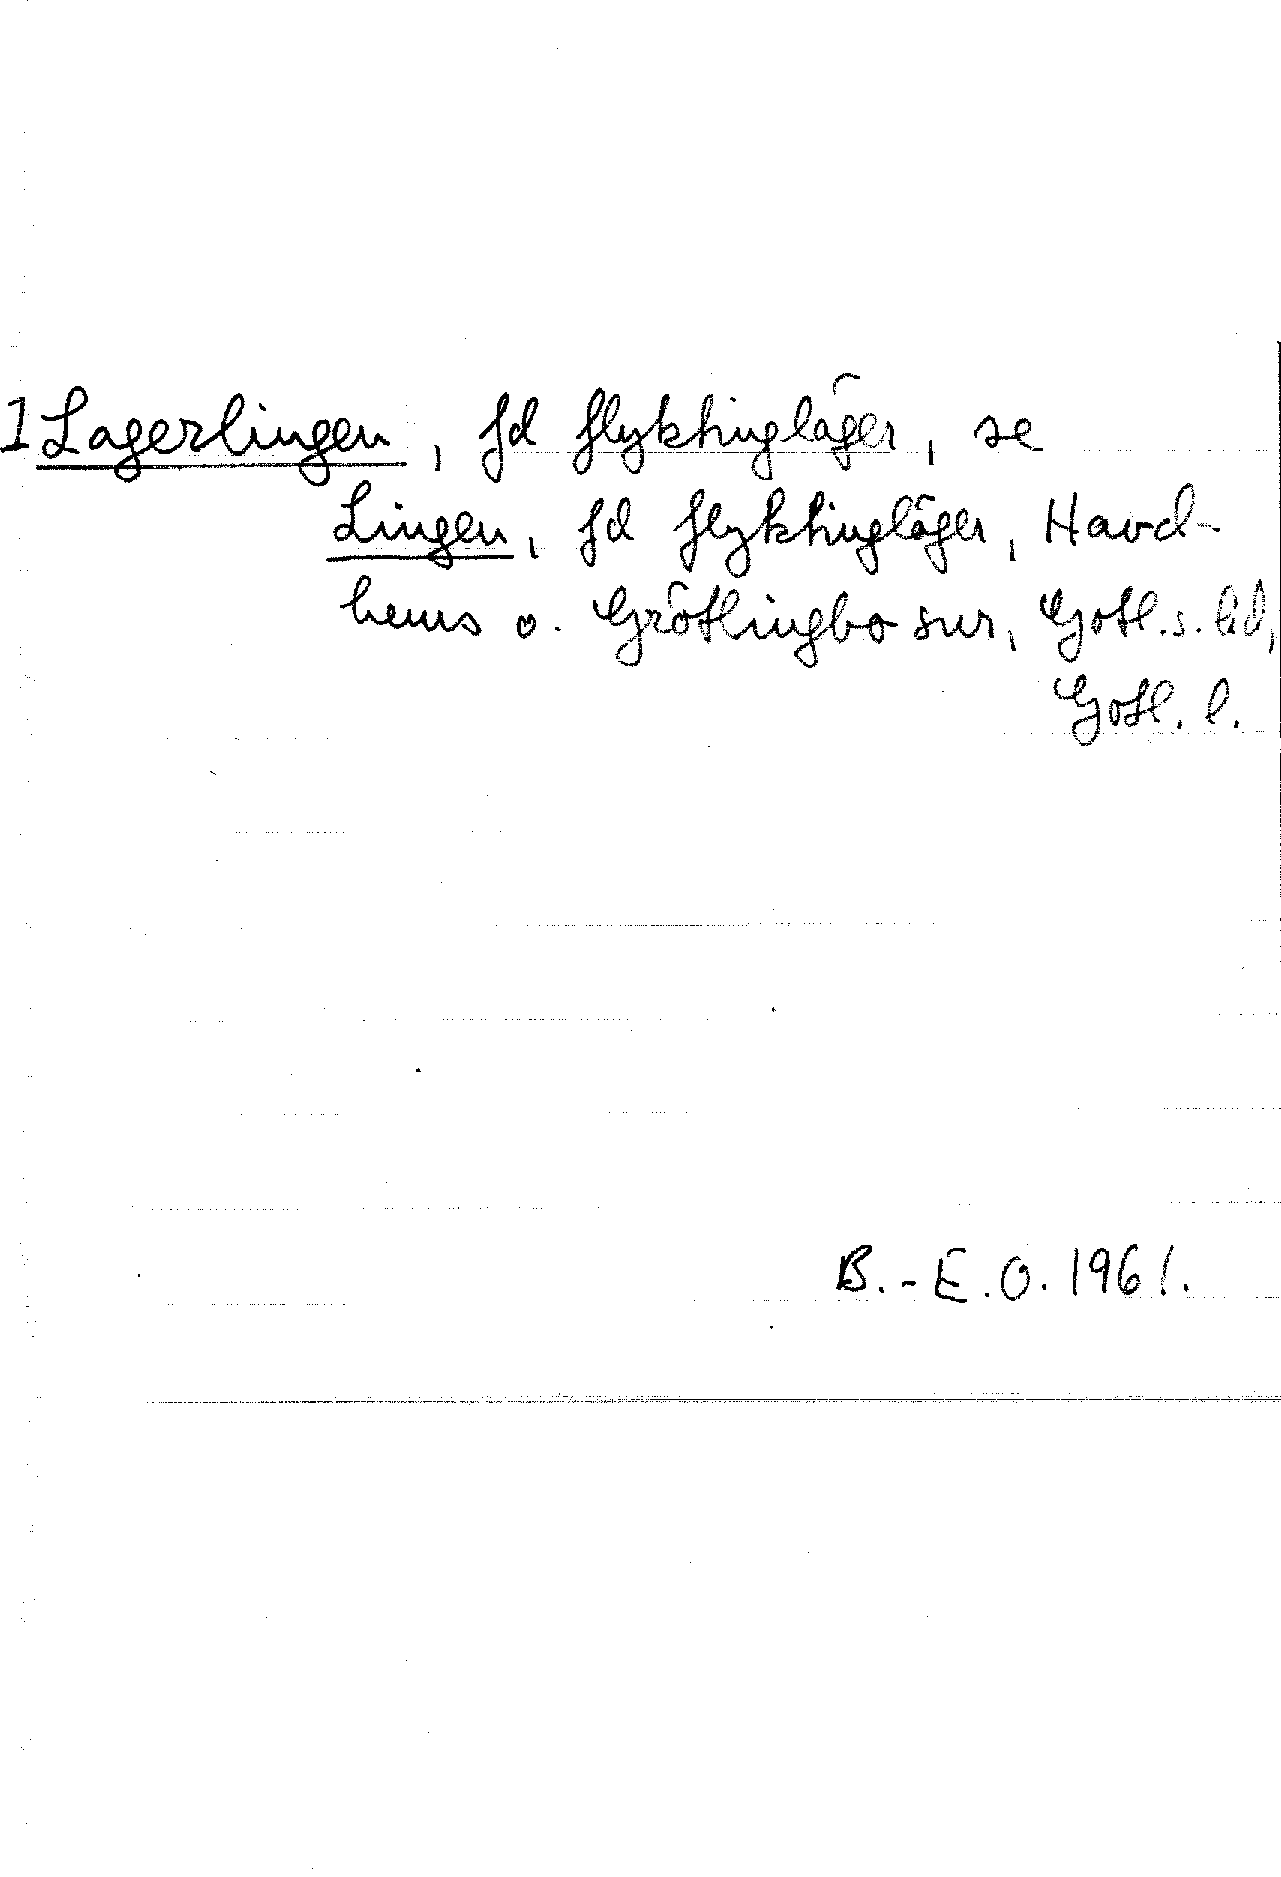 1 Lagerlingen, fd flyktingläger, se
Lingen, fd flyktingläger, Havd-
hems o. Grötlingbo snr, Gotl. s. hd,
Gotl. l.
B.-E.O. 1961.